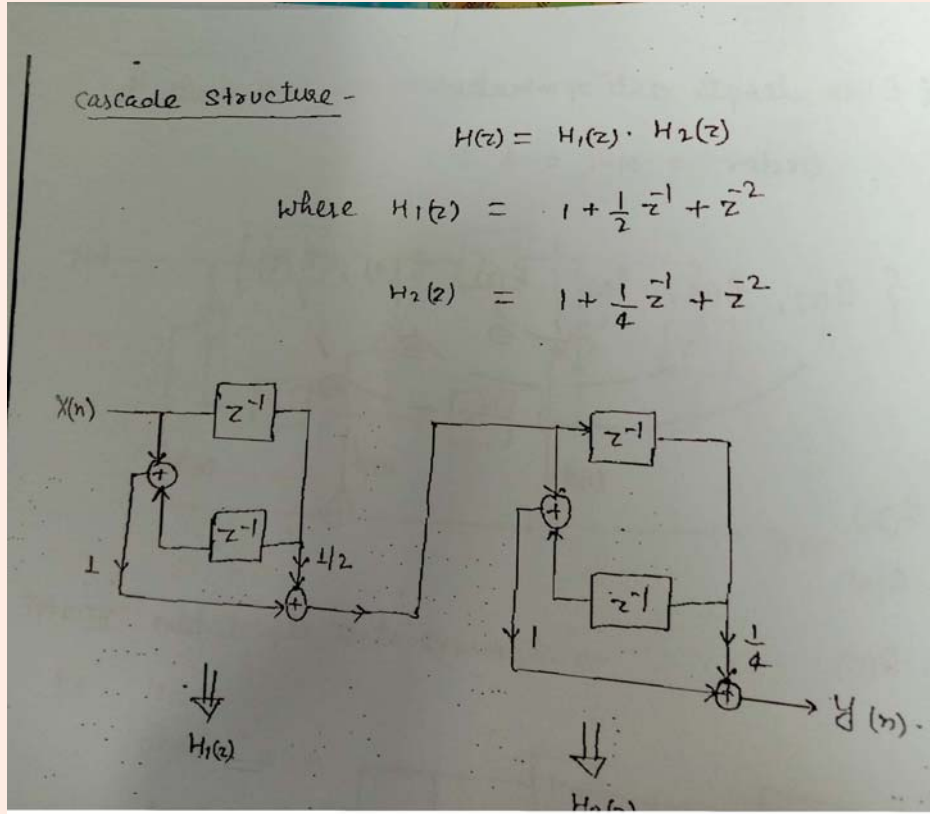 Cascade Structure -
H(z) = H1(z) . H2(z)
where H1(z) = 1 + 1/2 z^-1 + z^-2
H2(z) = 1 + 1/4 z^-1 + z^-2
X(n)
z^-1
+
z^-1
1
1/2
+
H1(z)
z^-1
+
z^-1
1
1/4
+
y(n).
H2(z)